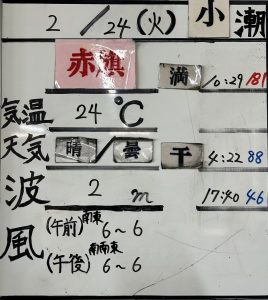 2/24(火) 小潮
赤旗 満 10:29 181
気温 24℃
天気 晴/曇 干 4:22 88
波 2 m 17:40 46
風 (午前)南東 6～6
(午後)南南東 6～6